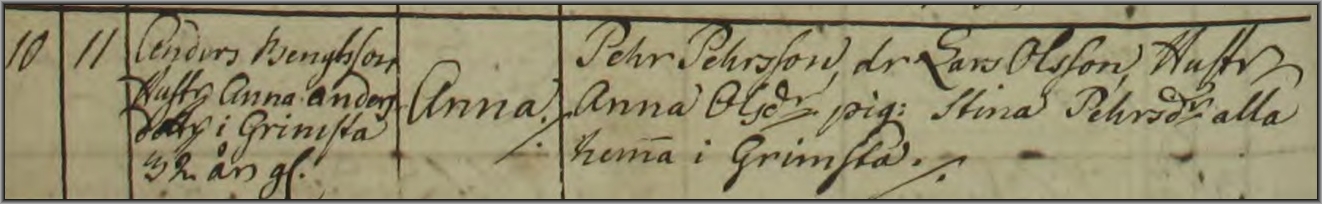 10 11 Anders Bengtsson
Hustr Anna Anders
dottr i Grimsta
32 års gl.
Anna.
Pehr Pehrsson, dr Lars Olsson, Hustr
Anna Olsdr pig: Stina Pehrsdr alla
hem̄a i Grimsta.